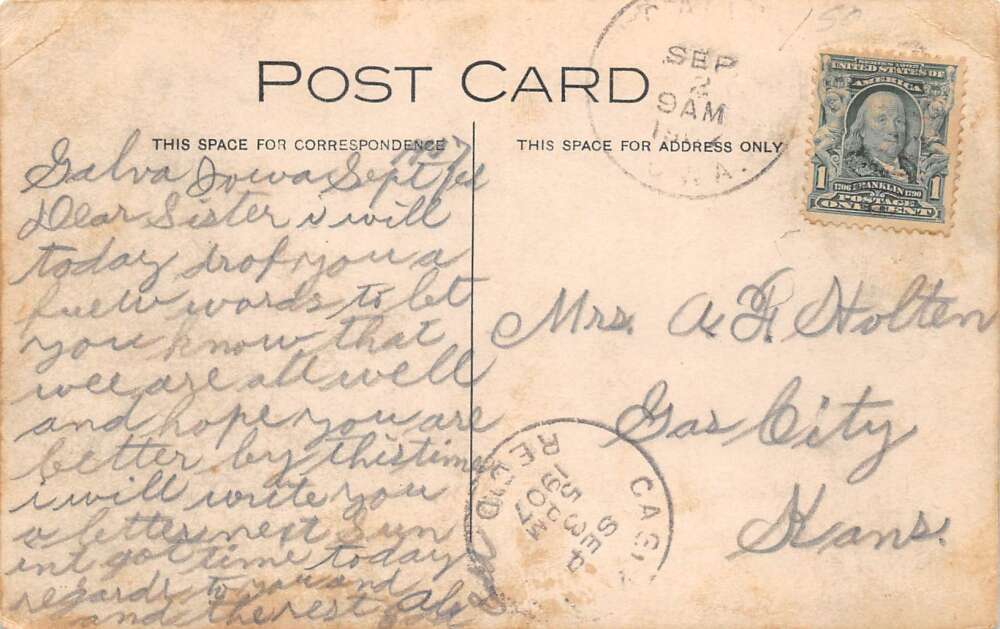 POST CARD
THIS SPACE FOR CORRESPONDENCE
THIS SPACE FOR ADDRESS ONLY
SEP
2
9AM
SERIES 1902
UNITED STATES OF
AMERICA
1 1706 FRANKLIN 1790 1
POSTAGE
ONE CENT
1907
Galva Iowa Sept 1st
Dear Sister i will
today drop you a
fuew words to let
you know that
wee are all well
and hope you are
better by thistime
i will write you
a letter next Sun
int got time today
regards to you and
and the rest
Mrs. A. F. Holten
Gas City
Kans.
REC'D
GAS
SEP
3
5 PM
1907